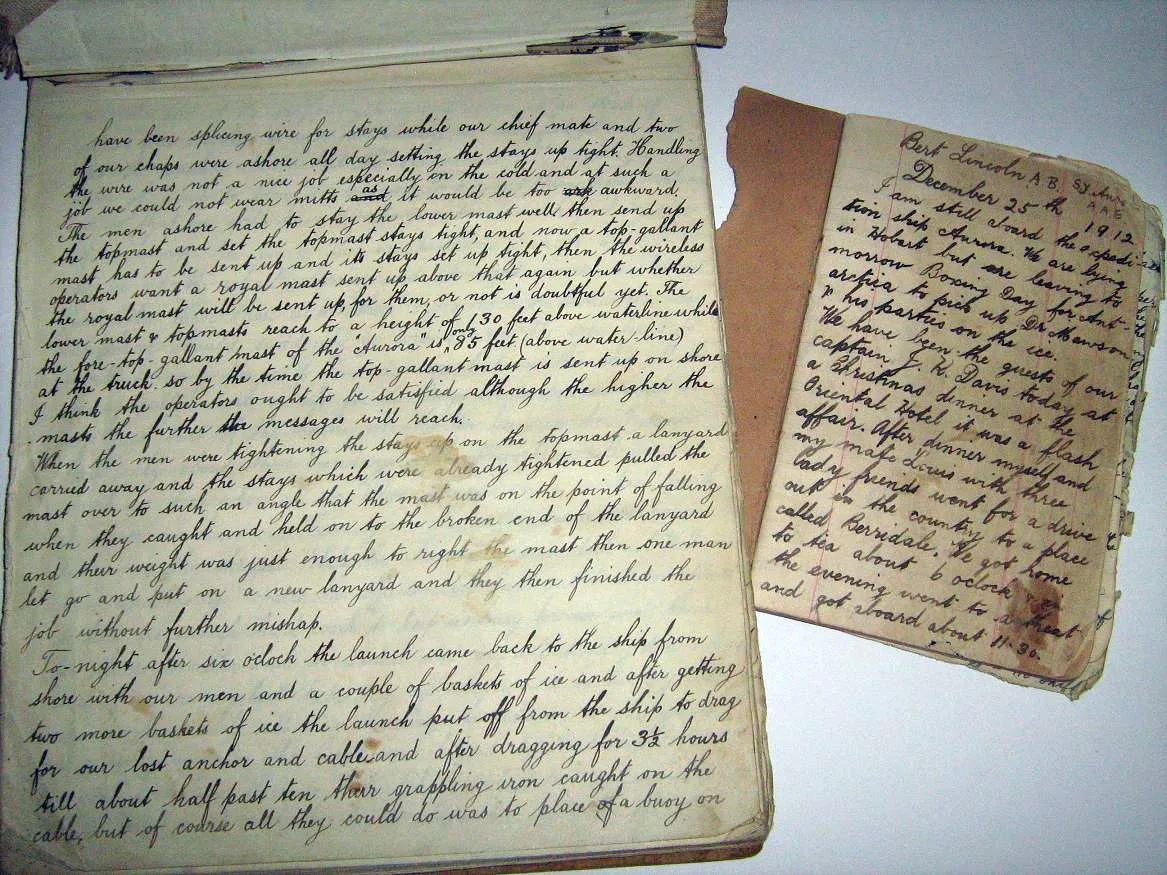 have been splicing wire for stays while our chief mate and two
of our chaps were ashore all day setting the stays up tight. Handling
the wire was not a nice job especially in the cold and at such a
job we could not wear mitts as it would be too awkward.
The men ashore had to stay the lower mast well, then send up
the topmast and set the topmast stays tight, and now a top-gallant
mast has to be sent up and its stays set up tight, then the wireless
operators want a royal mast sent up above that again but whether
the royal mast will be sent up, for them, or not is doubtful yet. The
lower mast & topmasts reach to a height of 130 feet above waterline while
the fore-top-gallant mast of the "Aurora" is only 85 feet (above water-line)
at the truck. so by the time the top-gallant mast is sent up on shore
I think the operators ought to be satisfied although the higher the
masts the further the messages will reach.
When the men were tightening the stays up on the topmast a lanyard
carried away and the stays which were already tightened pulled the
mast over to such an angle that the mast was on the point of falling
when they caught and held on to the broken end of the lanyard
and their weight was just enough to right the mast then one man
let go and put on a new lanyard and they then finished the
job without further mishap.
To-night after six oclock the launch came back to the ship from
shore with our men and a couple of baskets of ice and after getting
two more baskets of ice the launch put off from the ship to drag
for our lost anchor and cable and after dragging for 3½ hours
till about half past ten their grappling iron caught on the
cable, but of course all they could do was to place a buoy on
Bert Lincoln A.B. SY. Auro
A A E
December 25th 1912
I am still aboard the expedi-
tion ship Aurora. We are lying
in Hobart but are leaving to
morrow Boxing Day for Ant-
arctica to pick up Dr Mawson
& his parties on the ice.
We have been the guests of our
captain J. K. Davis today at
a Christmas dinner at the
Oriental Hotel it was a flash
affair. After dinner myself and
my mate with three
lady friends went for a drive
out in the country to a place
called Berridale. We got home
to tea about 6 oclock &
the evening went to a theat
and got aboard about 11.30.